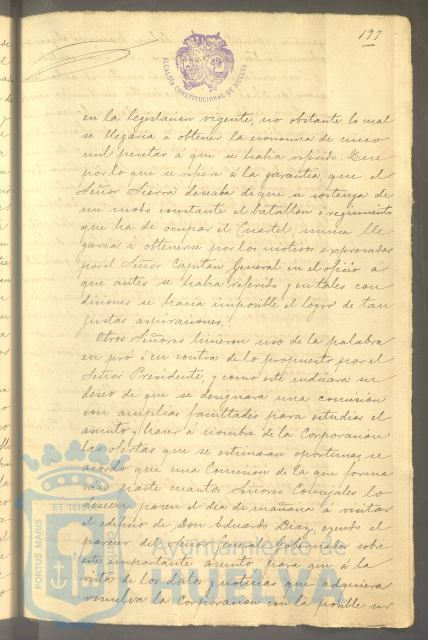 197
ALCALDÍA CONSTITUCIONAL DE HUELVA
en la legislacion vigente, no obstante lo cual
se llegaria á obtener la economia de cinco
mil pesetas á que se habia referido: Que
por lo que se refiera á la garantia que el
Señor Sierra deseaba de que se sostenga de
un modo constante el batallon ó regimiento
que ha de ocupar el Cuartel, nunca lle
garia á obtenerse por los motivos expresados
por el Señor Capitan General en el oficio a
que antes se habia referido y en tales con
diciones se hacia imposible el logro de tan
justas aspiraciones.
Otros Señores hicieron uso de la palabra
en pró ó en contra de lo propuesto por el
Señor Presidente, y como este indicara su
deseo de que se designara una comision
con amplias facultades para estudiar el
asunto y hacer á nombre de la Corporacion
las ofertas que se estimasen oportunas, se
acordó que una Comision de la que forma
ran parte cuantos Señores Concejales lo
deseen, pasen el dia de mañana á visitar
el edificio de Don Eduardo Diaz, oyendo el
parecer del Señor General Gobernador sobre
este importante asunto para que á la
vista de los datos y noticias que adquiera
resuelva la Corporacion con la posible ur
PORTUS MARIS ET TERRAE
Ayuntamiento de
HUELVA